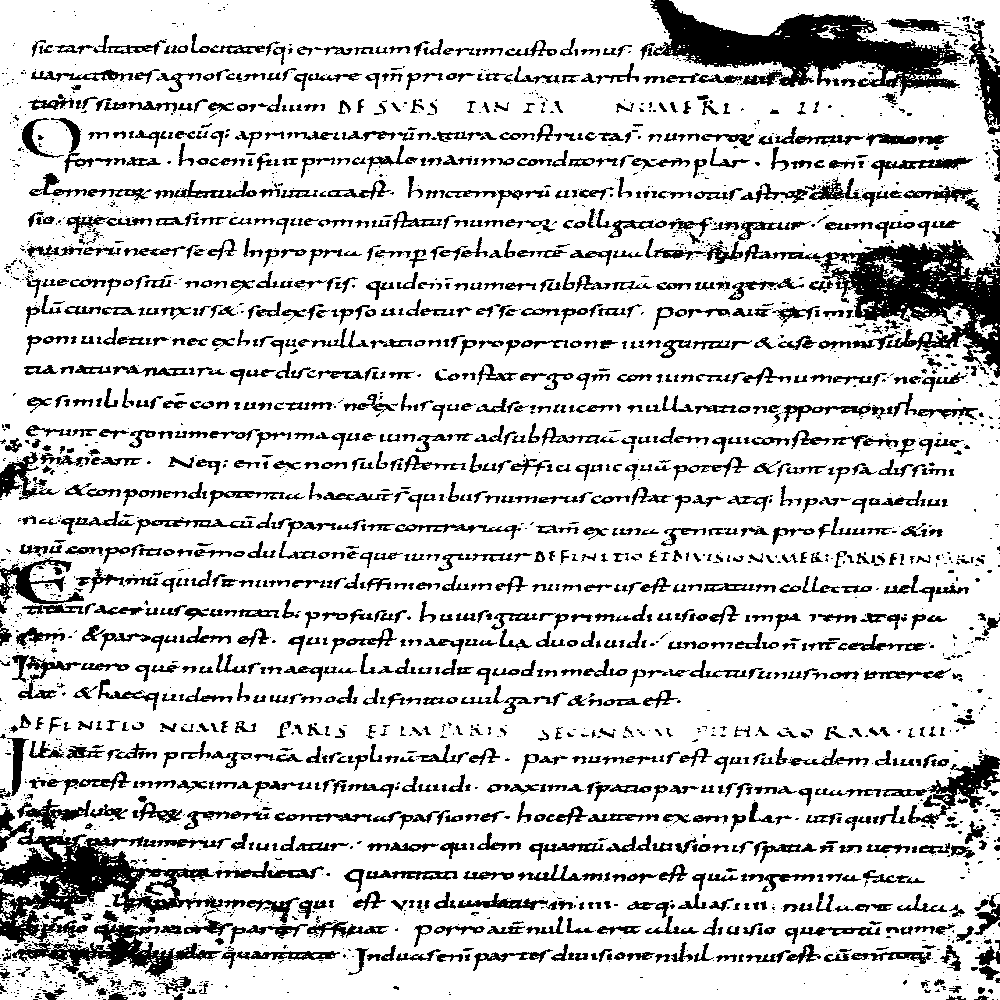 sic tarditates uolocitatesq; errantium siderum custodimus. sic
uariationes agnoscimus quare qm̄ prior ut claruit arithmeticae uis est hinc
tionis sumamus exordium DE SVBSTANTIA NUMERI · II ·
Omniaquecūq; aprimaeuarerū natura constructas̄t · numeroꝝ uidentur ratione
formata · hoc enī fuit principale inanimo conditoris exemplar · hinc enī quattuor
elementoꝝ multitudo mutuata est · hinc temporū uices · hinc motus astroꝝ caelique conuer
sio · que cum ita sint cumque omniū status numeroꝝ colligatione fungatur · eum quoque
numerū necesse est Inpropria semꝑ sese habentē aequaliter substantia
que conpositū non ex diuersis · quid enī numeri substantiā coniunger&
plū cuncta iunxiss& · sed ex se ipso uidetur esse conpositus · Porro aut̄
poni uidetur nec ex his que nulla rationis proportione iunguntur & a se omni substan
tia natura naturaque discreta sunt · Constat ergo qm̄ coniunctus est numerus · neque
ex similibus eē coniunctum neq; ex his que ad se inuicem nulla ratione ꝓportionis herent
Erunt ergo numeros prima que iungant ad substantiā quidem qui constent semꝑque
ꝑmaneant · Neq; enī ex non subsistentibus effici quicquā potest & sunt ipsa dissimi
lia & conponendi potentia haec aut̄ s̄t quibus numerus constat par atq; Inpar quae diui
na quadā potentia cū disparia sint contrariaq; tam̄ ex una genitura profluunt · & in
unū conpositionē modulationēque iunguntur DEFINITIO ET DIVISIO NVMERI PARIS ET INPARIS
Et primū quid sit numerus diffiniendum est numerus est unitatum collectio · uel quan
titatis aceruus ex unitatib; profusus · huius igitur prima diuisio est impa rem atq; pa
rem · & par quidem est · qui potest in aequalia duo diuidi · uno medio n̄ int̄cedente ·
Inpar uero quē nullus in aequalia diuidit quod in medio praedictus unus non interce
dat · & haec quidem huiusmodi difinitio uulgaris & nota est ·
DEFINITIO NUMERI PARIS ET IMPARIS SECUNDVM PITHAGORAM · IIII ·
Illa aut̄ scdm̄ pithagoricā disciplinā talis est · Par numerus est qui sub eadem diuisio
ne potest in maxima paruissimaq; diuidi · maxima spatio paruissima quantitate
scdm̄ duoꝝ istoꝝ generū contrarias passiones · hoc est autem exemplar · ut si quislib&
datus par numerus diuidatur · maior quidem quantū ad diuisionis spatia n̄ inuenietur
medietas · Quantitati uero nulla minor est quā in gemina facta
numerus qui est VIII diuidatur in IIII · atq; alias IIII · nulla erit alia
diuisio que maiores partes efficiat · Porro aut̄ nulla erit alia diuisio que totū nume
diuidat quantitate · In duas enī partes diuisione nihil minus est cū enī totū